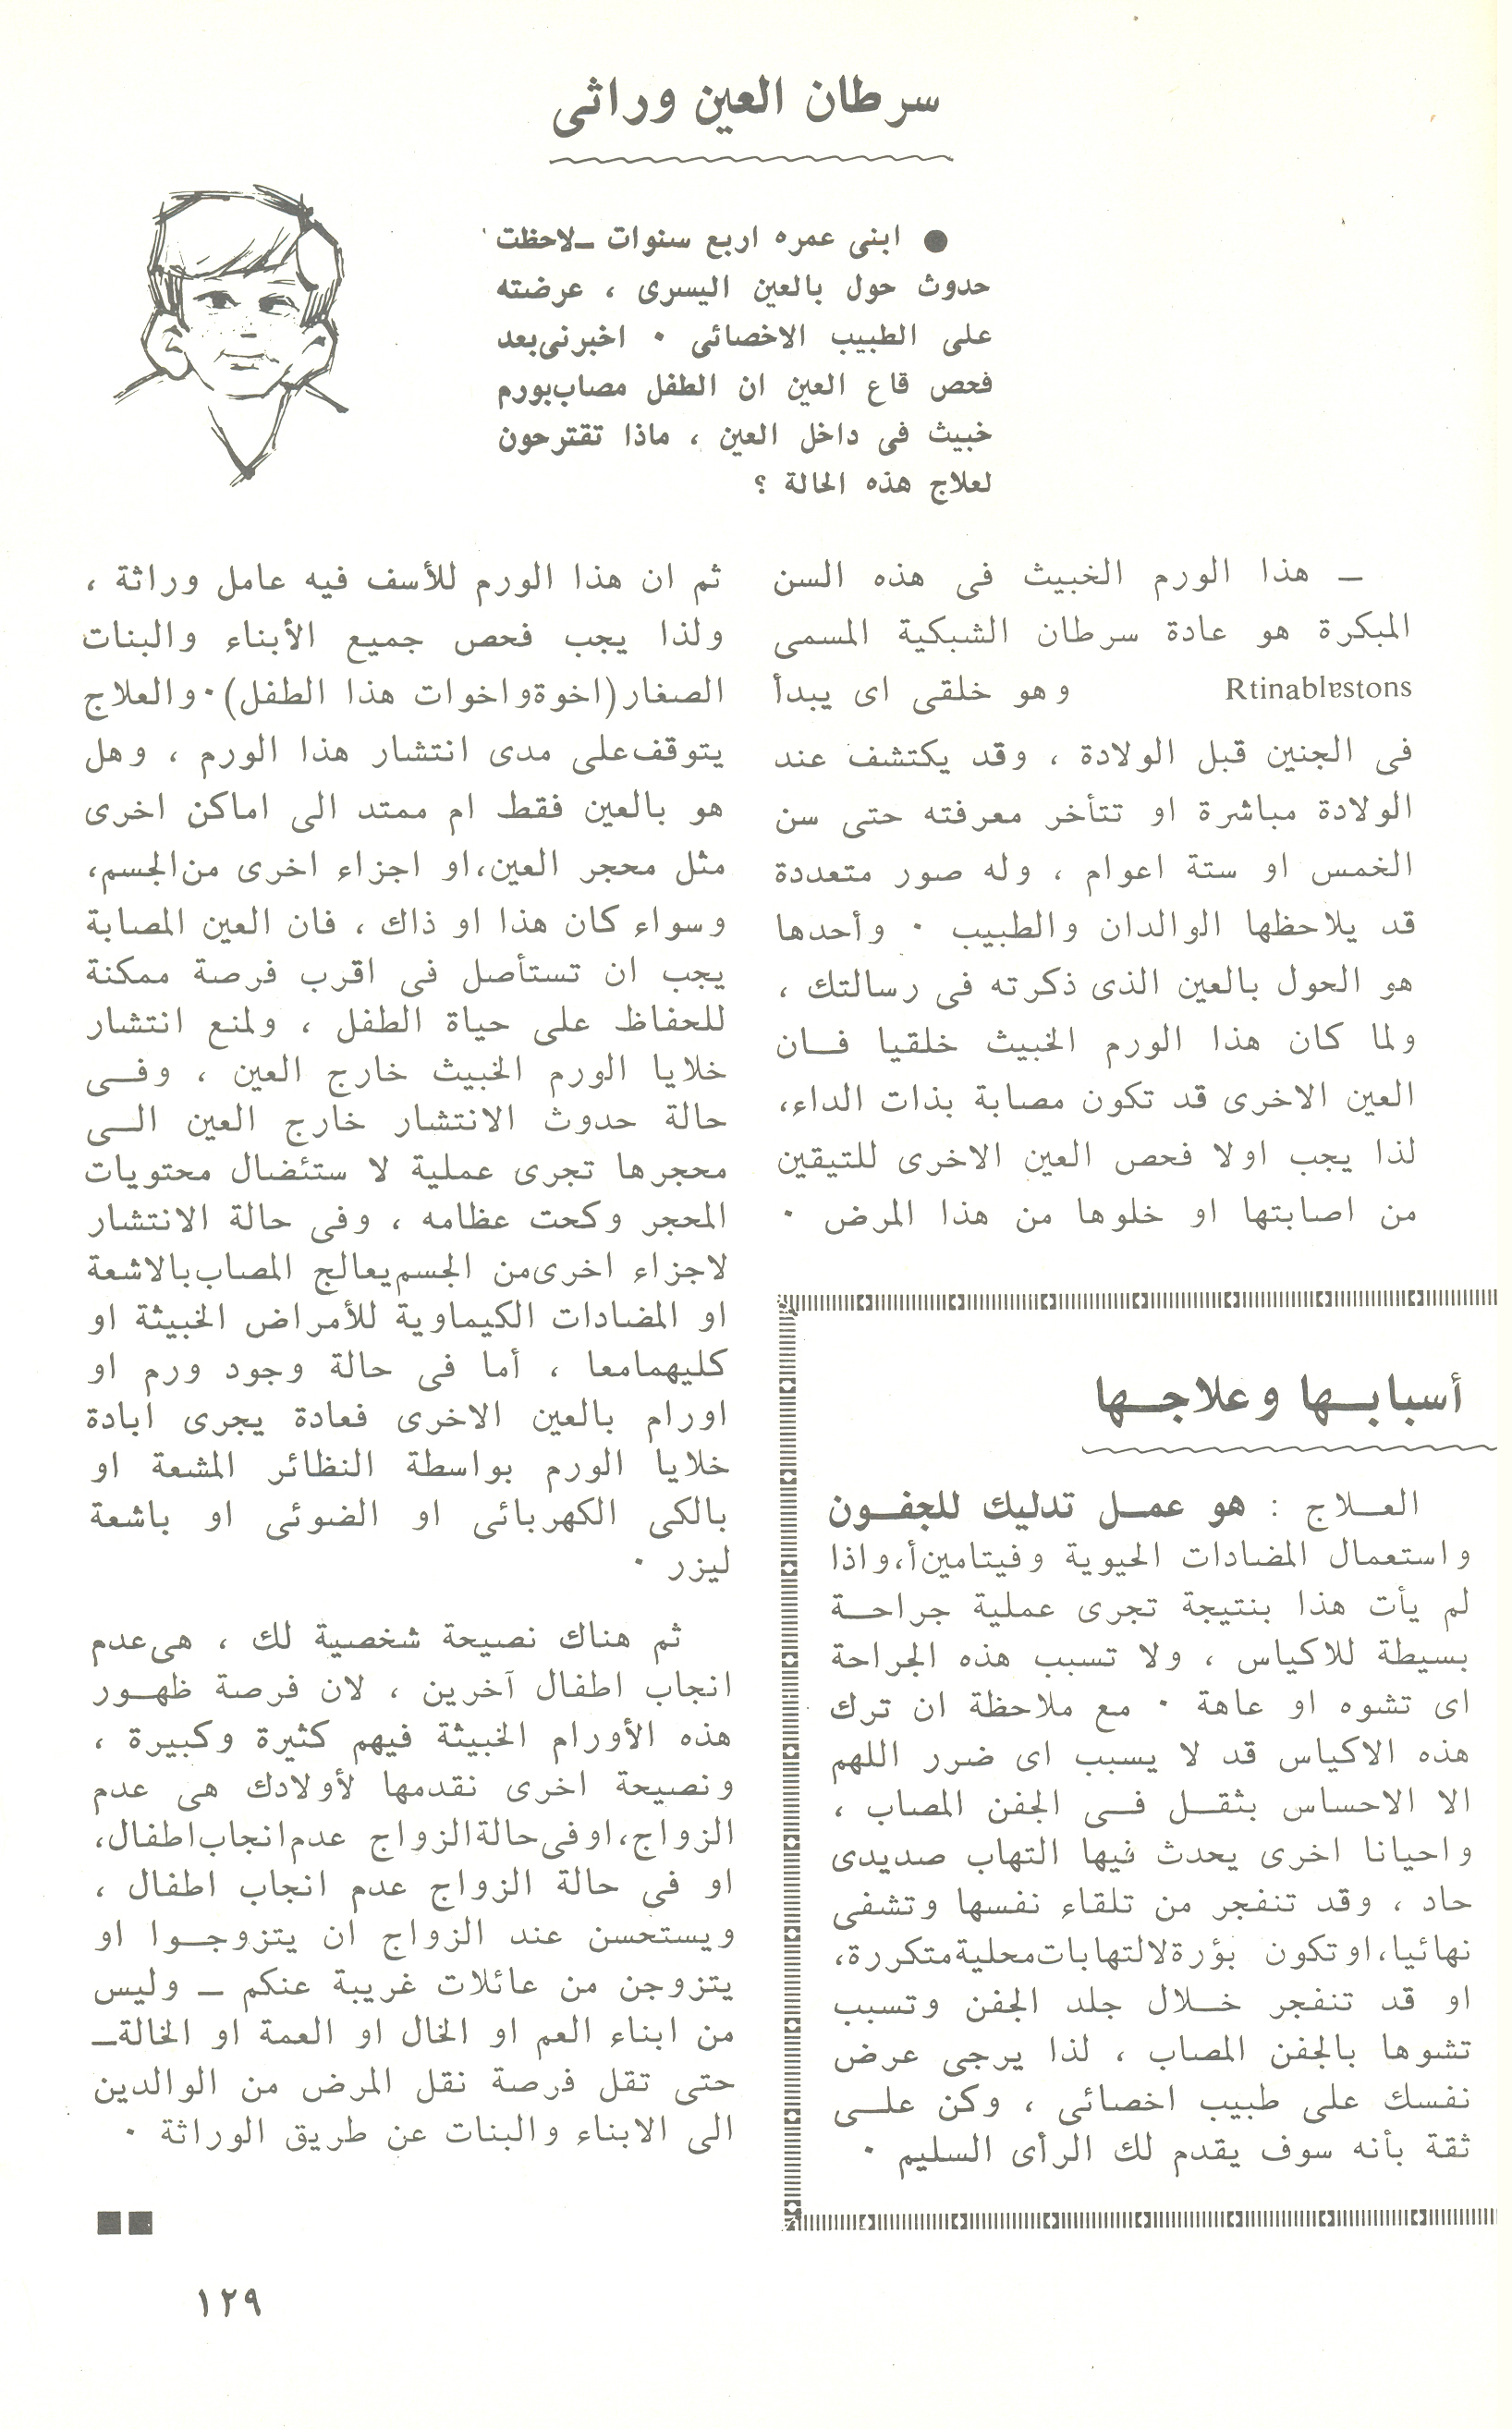 سرطان العين وراثى
● ابنى عمره اربع سنوات ــ لاحظت
حدوث حول بالعين اليسرى ، عرضته
على الطبيب الاخصائى ٠ اخبرنى بعد
فحص قاع العين ان الطفل مصاب بورم
خبيث فى داخل العين ، ماذا تقترحون
لعلاج هذه الحالة ؟
ــ هذا الورم الخبيث فى هذه السن
المبكرة هو عادة سرطان الشبكية المسمى
Rtinablastons وهو خلقى اى يبدأ
فى الجنين قبل الولادة ، وقد يكتشف عند
الولادة مباشرة او تتأخر معرفته حتى سن
الخمس او ستة اعوام ، وله صور متعددة
قد يلاحظها الوالدان والطبيب ٠ وأحدها
هو الحول بالعين الذى ذكرته فى رسالتك ،
ولما كان هذا الورم الخبيث خلقيا فـان
العين الاخرى قد تكون مصابة بذات الداء،
لذا يجب اولا فحص العين الاخرى للتيقين
من اصابتها او خلوها من هذا المرض ٠
ثم ان هذا الورم للأسف فيه عامل وراثة ،
ولذا يجب فحص جميع الأبناء والبنات
الصغار (اخوة واخوات هذا الطفل)٠ والعلاج
يتوقف على مدى انتشار هذا الورم ، وهل
هو بالعين فقط ام ممتد الى اماكن اخرى
مثل محجر العين،او اجزاء اخرى من الجسم،
وسواء كان هذا او ذاك ، فان العين المصابة
يجب ان تستأصل فى اقرب فرصة ممكنة
للحفاظ على حياة الطفل ، ولمنع انتشار
خلايا الورم الخبيث خارج العين ، وفـى
حالة حدوث الانتشار خارج العين الـى
محجرها تجرى عملية لا ستئضال محتويات
المحجر وكحت عظامه ، وفى حالة الانتشار
لاجزاء اخرى من الجسم يعالج المصاب بالاشعة
او المضادات الكيماوية للأمراض الخبيثة او
كليهما معا ، أما فى حالة وجود ورم او
اورام بالعين الاخرى فعادة يجرى ابادة
خلايا الورم بواسطة النظائر المشعة او
بالكى الكهربائى او الضوئى او باشعة
ليزر ٠
ثم هناك نصيحة شخصية لك ، هى عدم
انجاب اطفال آخرين ، لان فرصة ظهـور
هذه الأورام الخبيثة فيهم كثيرة وكبيرة ،
ونصيحة اخرى نقدمها لأولادك هى عدم
الزواج،او فى حالة الزواج عدم انجاب اطفال،
او فى حالة الزواج عدم انجاب اطفال ،
ويستحسن عند الزواج ان يتزوجـوا او
يتزوجن من عائلات غريبة عنكم ــ وليس
من ابناء العم او الخال او العمة او الخالة ــ
حتى تقل فرصة نقل المرض من الوالدين
الى الابناء والبنات عن طريق الوراثة ٠
أسبابـها وعلاجـها
العـلاج : هو عمـل تدليك للجفـون
واستعمال المضادات الحيوية وفيتامين أ،واذا
لم يأت هذا بنتيجة تجرى عملية جراحـة
بسيطة للاكياس ، ولا تسبب هذه الجراحة
اى تشوه او عاهة ٠ مع ملاحظة ان ترك
هذه الاكياس قد لا يسبب اى ضرر اللهم
الا الاحساس بثقـل فـى الجفن المصاب ،
واحيانا اخرى يحدث فيها التهاب صديدى
حاد ، وقد تنفجر من تلقاء نفسها وتشفى
نهائيا،او تكون بؤرة لالتهابات محلية متكررة،
او قد تنفجر خـلال جلد الجفن وتسبب
تشوها بالجفن المصاب ، لذا يرجى عرض
نفسك على طبيب اخصائى ، وكن علـى
ثقة بأنه سوف يقدم لك الرأى السليم ٠
١٢٩